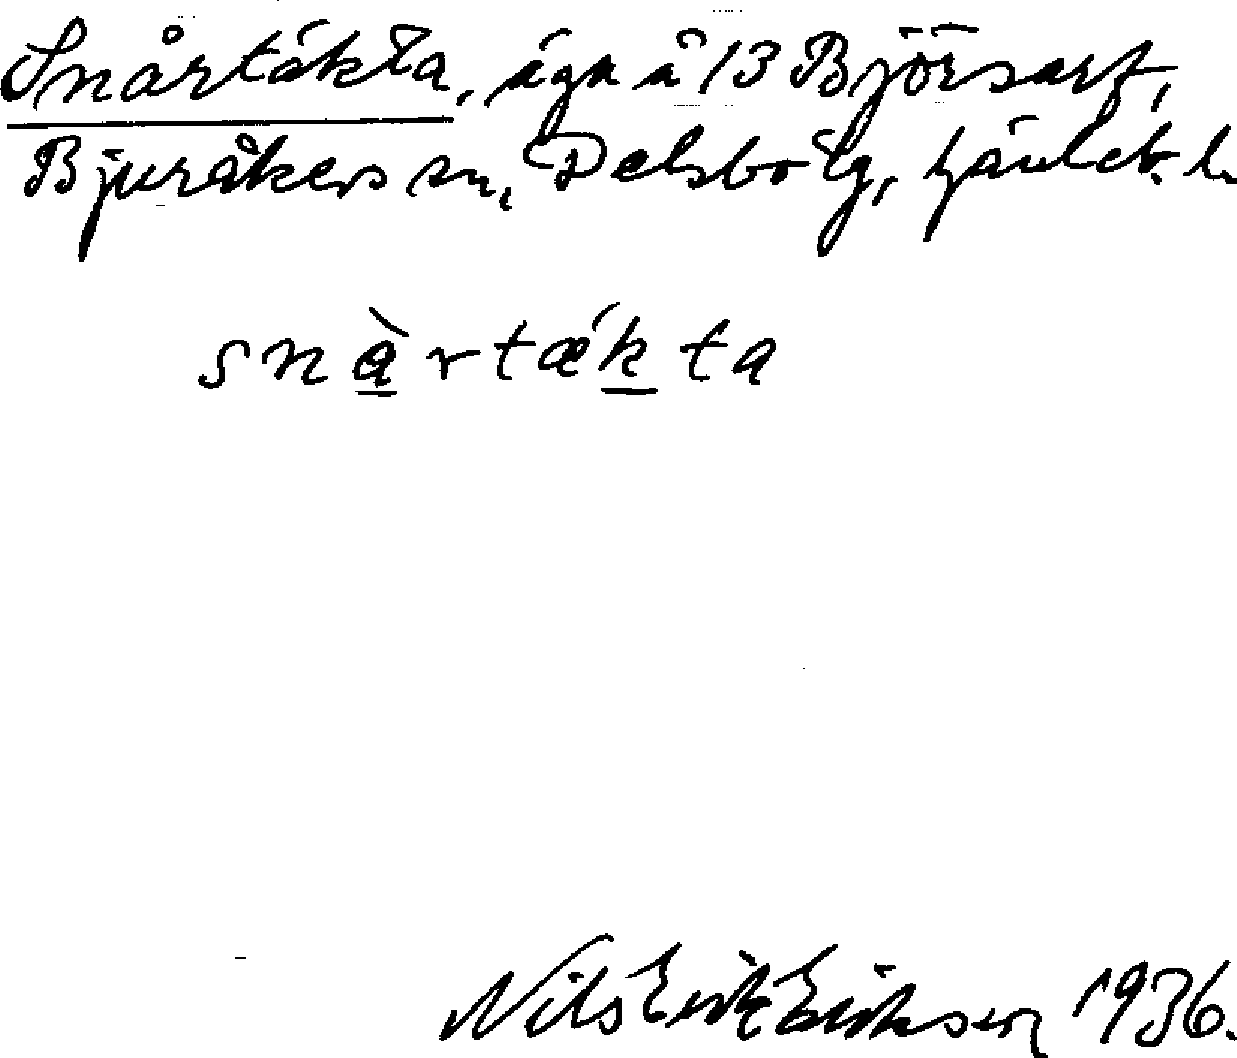 Snårtäkta, äga å 13 Björsarf,
Bjuråkers sn, Delsbo tg, Gävleb. l.
snàrtǽkta
Nils Erik Eriksson 1936.